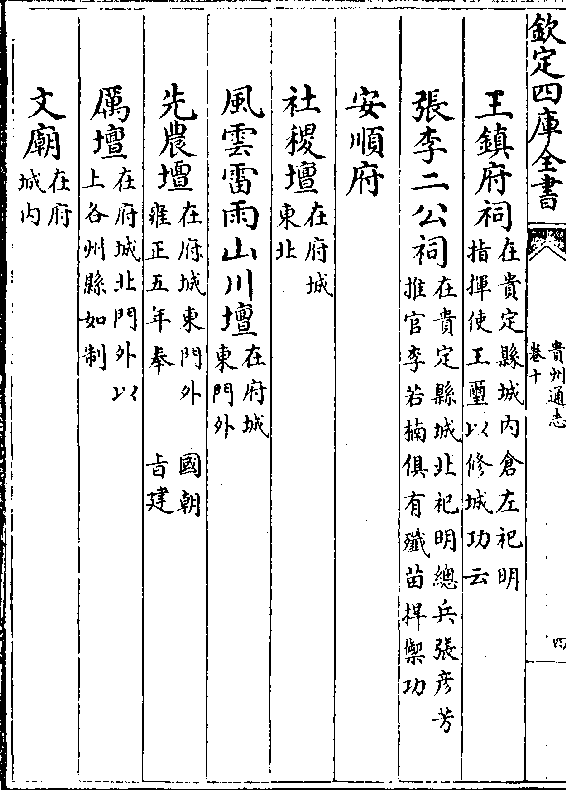 欽定四庫全書
貴州通志
卷十
四
王鎮府祠在貴定縣城内倉左祀明
指揮使王璽以修城功云
張李二公祠在貴定縣城北祀明總兵張彦芳
推官李若楠俱有殲苗捍禦功
安順府
社稷壇在府城
東北
風雲雷雨山川壇在府城
東門外
先農壇在府城東門外 國朝
雍正五年奉 旨建
厲壇在府城北門外以
上各州縣如制
文廟在府
城内